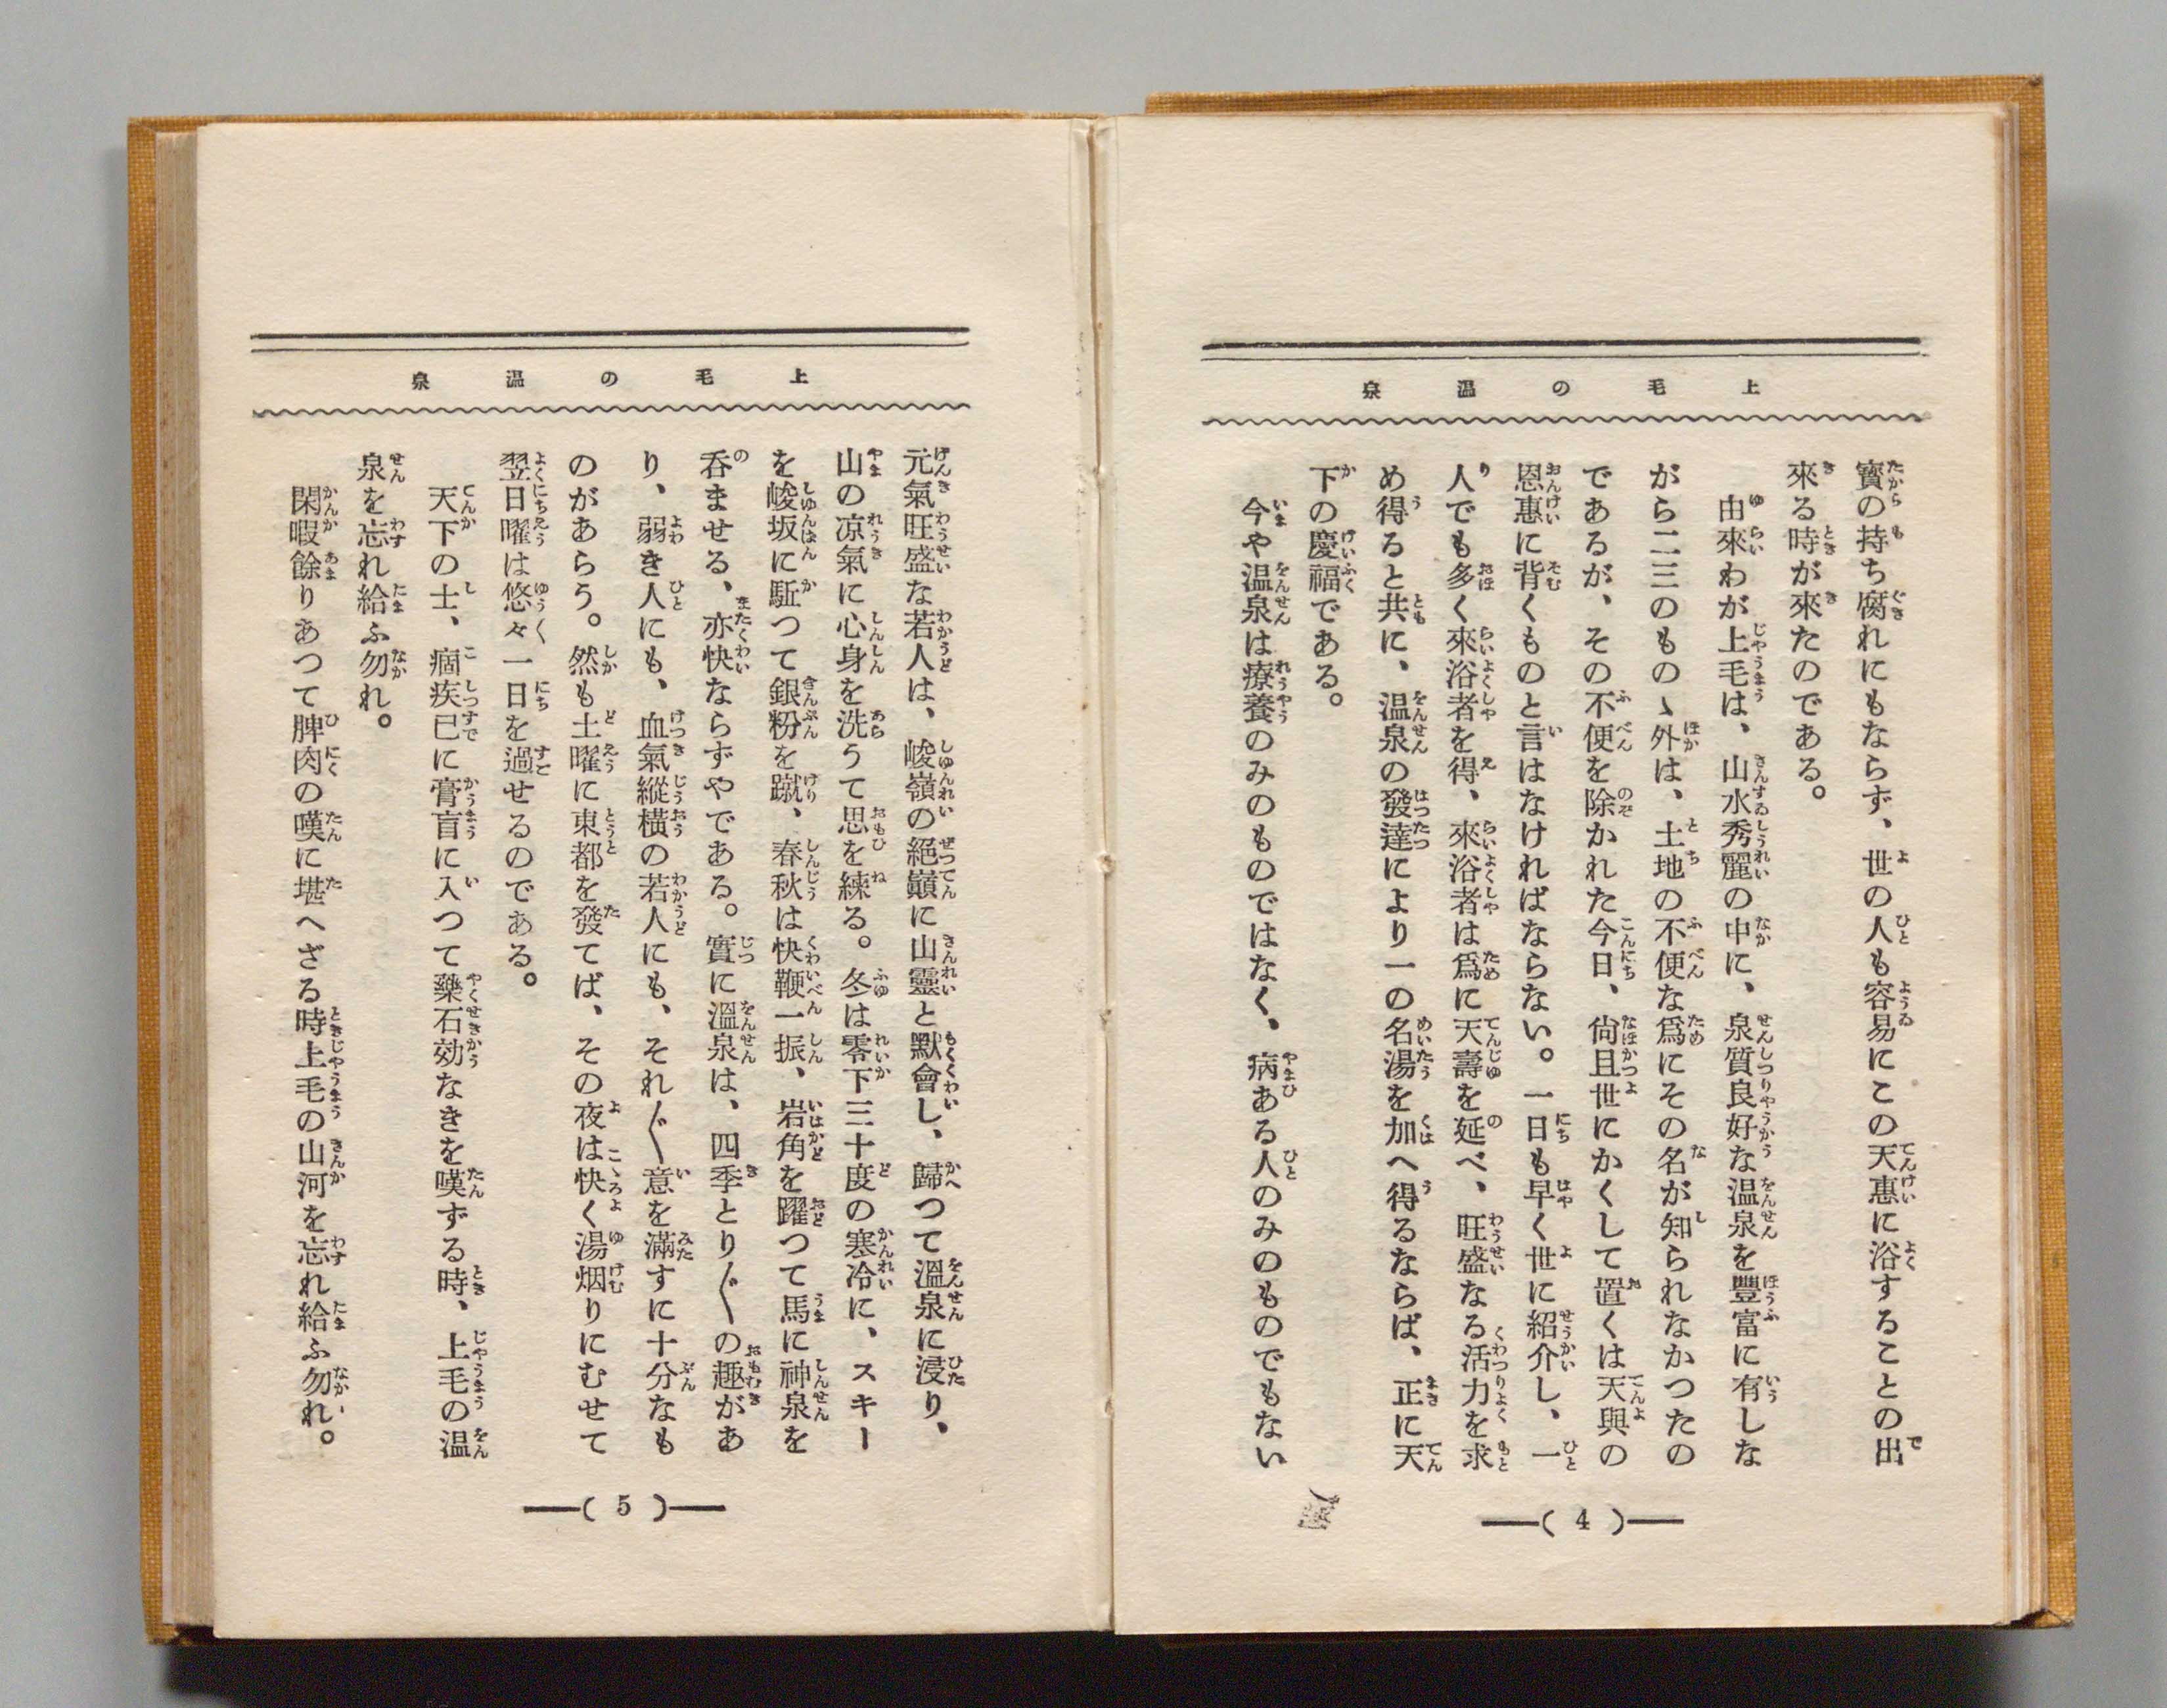 上毛の温泉
寶の持ち腐れにもならず、世の人も容易にこの天惠に浴することの出
來る時が來たのである。
由來わが上毛は、山水秀麗の中に、泉質良好な温泉を豐富に有しな
がら二三のものゝ外は、土地の不便な爲にその名が知られなかつたの
であるが、その不便を除かれた今日、尙且世にかくして置くは天與の
恩惠に背くものと言はなければならない。一日も早く世に紹介し、一
人でも多く來浴者を得、來浴者は爲に天壽を延べ、旺盛なる活力を求
め得ると共に、温泉の發達により一の名湯を加へ得るならば、正に天
下の慶福である。
今や温泉は療養のみのものではなく、病ある人のみのものでもない
(4)
上毛の温泉
元氣旺盛な若人は、峻嶺の絕巓に山靈と默會し、歸つて溫泉に浸り、
山の凉氣に心身を洗うて思を練る。冬は零下三十度の寒冷に、スキー
を峻坂に駈つて銀粉を蹴、春秋は快鞭一振、岩角を躍つて馬に神泉を
呑ませる、亦快ならずやである。實に溫泉は、四季とり〴〵の趣があ
り、弱き人にも、血氣縱橫の若人にも、それ〴〵意を滿すに十分なも
のがあらう。然も土曜に東都を發てば、その夜は快く湯烟りにむせて
翌日曜は悠々一日を過せるのである。
天下の士、痼疾已に膏盲に入つて藥石効なきを嘆ずる時、上毛の温
泉を忘れ給ふ勿れ。
閑暇餘りあつて脾肉の嘆に堪へざる時上毛の山河を忘れ給ふ勿れ。
(5)